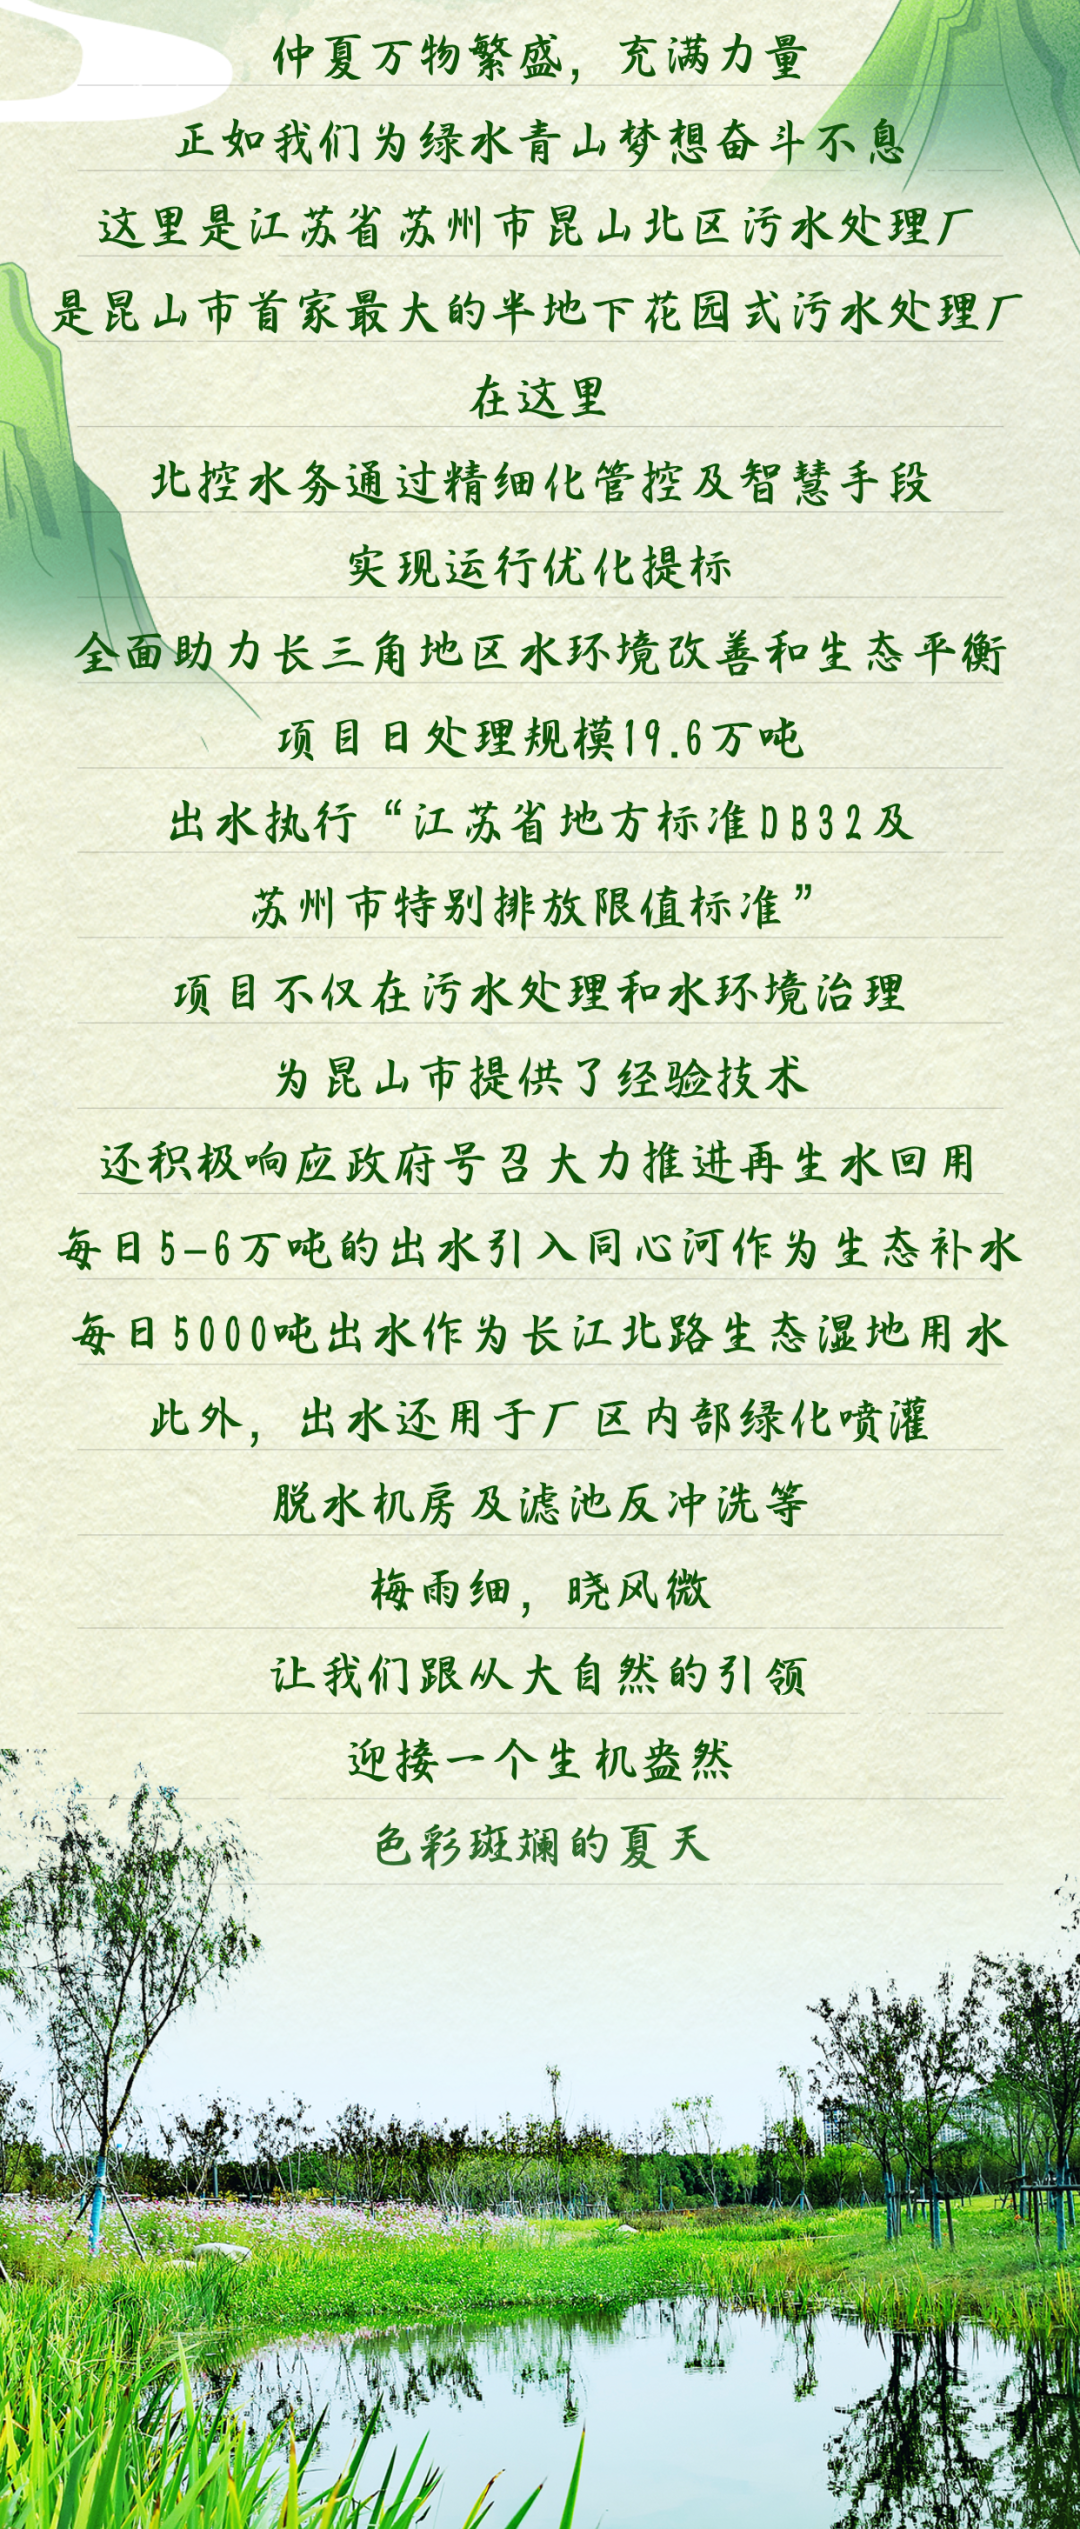 仲夏万物繁盛，充满力量
正如我们为绿水青山梦想奋斗不息
这里是江苏省苏州市昆山北区污水处理厂
是昆山市首家最大的半地下花园式污水处理厂
在这里
北控水务通过精细化管控及智慧手段
实现运行优化提标
全面助力长三角地区水环境改善和生态平衡
项目日处理规模19.6万吨
出水执行“江苏省地方标准DB32及
苏州市特别排放限值标准”
项目不仅在污水处理和水环境治理
为昆山市提供了经验技术
还积极响应政府号召大力推进再生水回用
每日5-6万吨的出水引入同心河作为生态补水
每日5000吨出水作为长江北路生态湿地用水
此外，出水还用于厂区内部绿化喷灌
脱水机房及滤池反冲洗等
梅雨细，晓风微
让我们跟从大自然的引领
迎接一个生机盎然
色彩斑斓的夏天